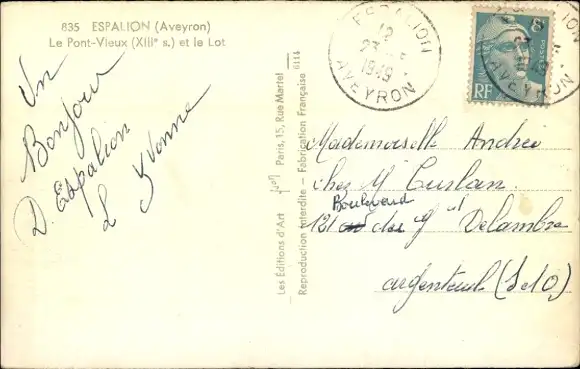 835 ESPALION (Aveyron)
Le Pont-Vieux (XIIIe s.) et le Lot
Un
Bonjour
D. Espalion
L Yvonne
Les Editions d'Art Paris, 15, Rue Martel
Reproduction interdite - Fabrication Française 6114
ESPALION
12
23
1949
AVEYRON
8F
POSTES
RF
Mademoiselle Andrée
chez M Curlan
Boulevard
121 du Gal Delambre
argenteuil (S et O)